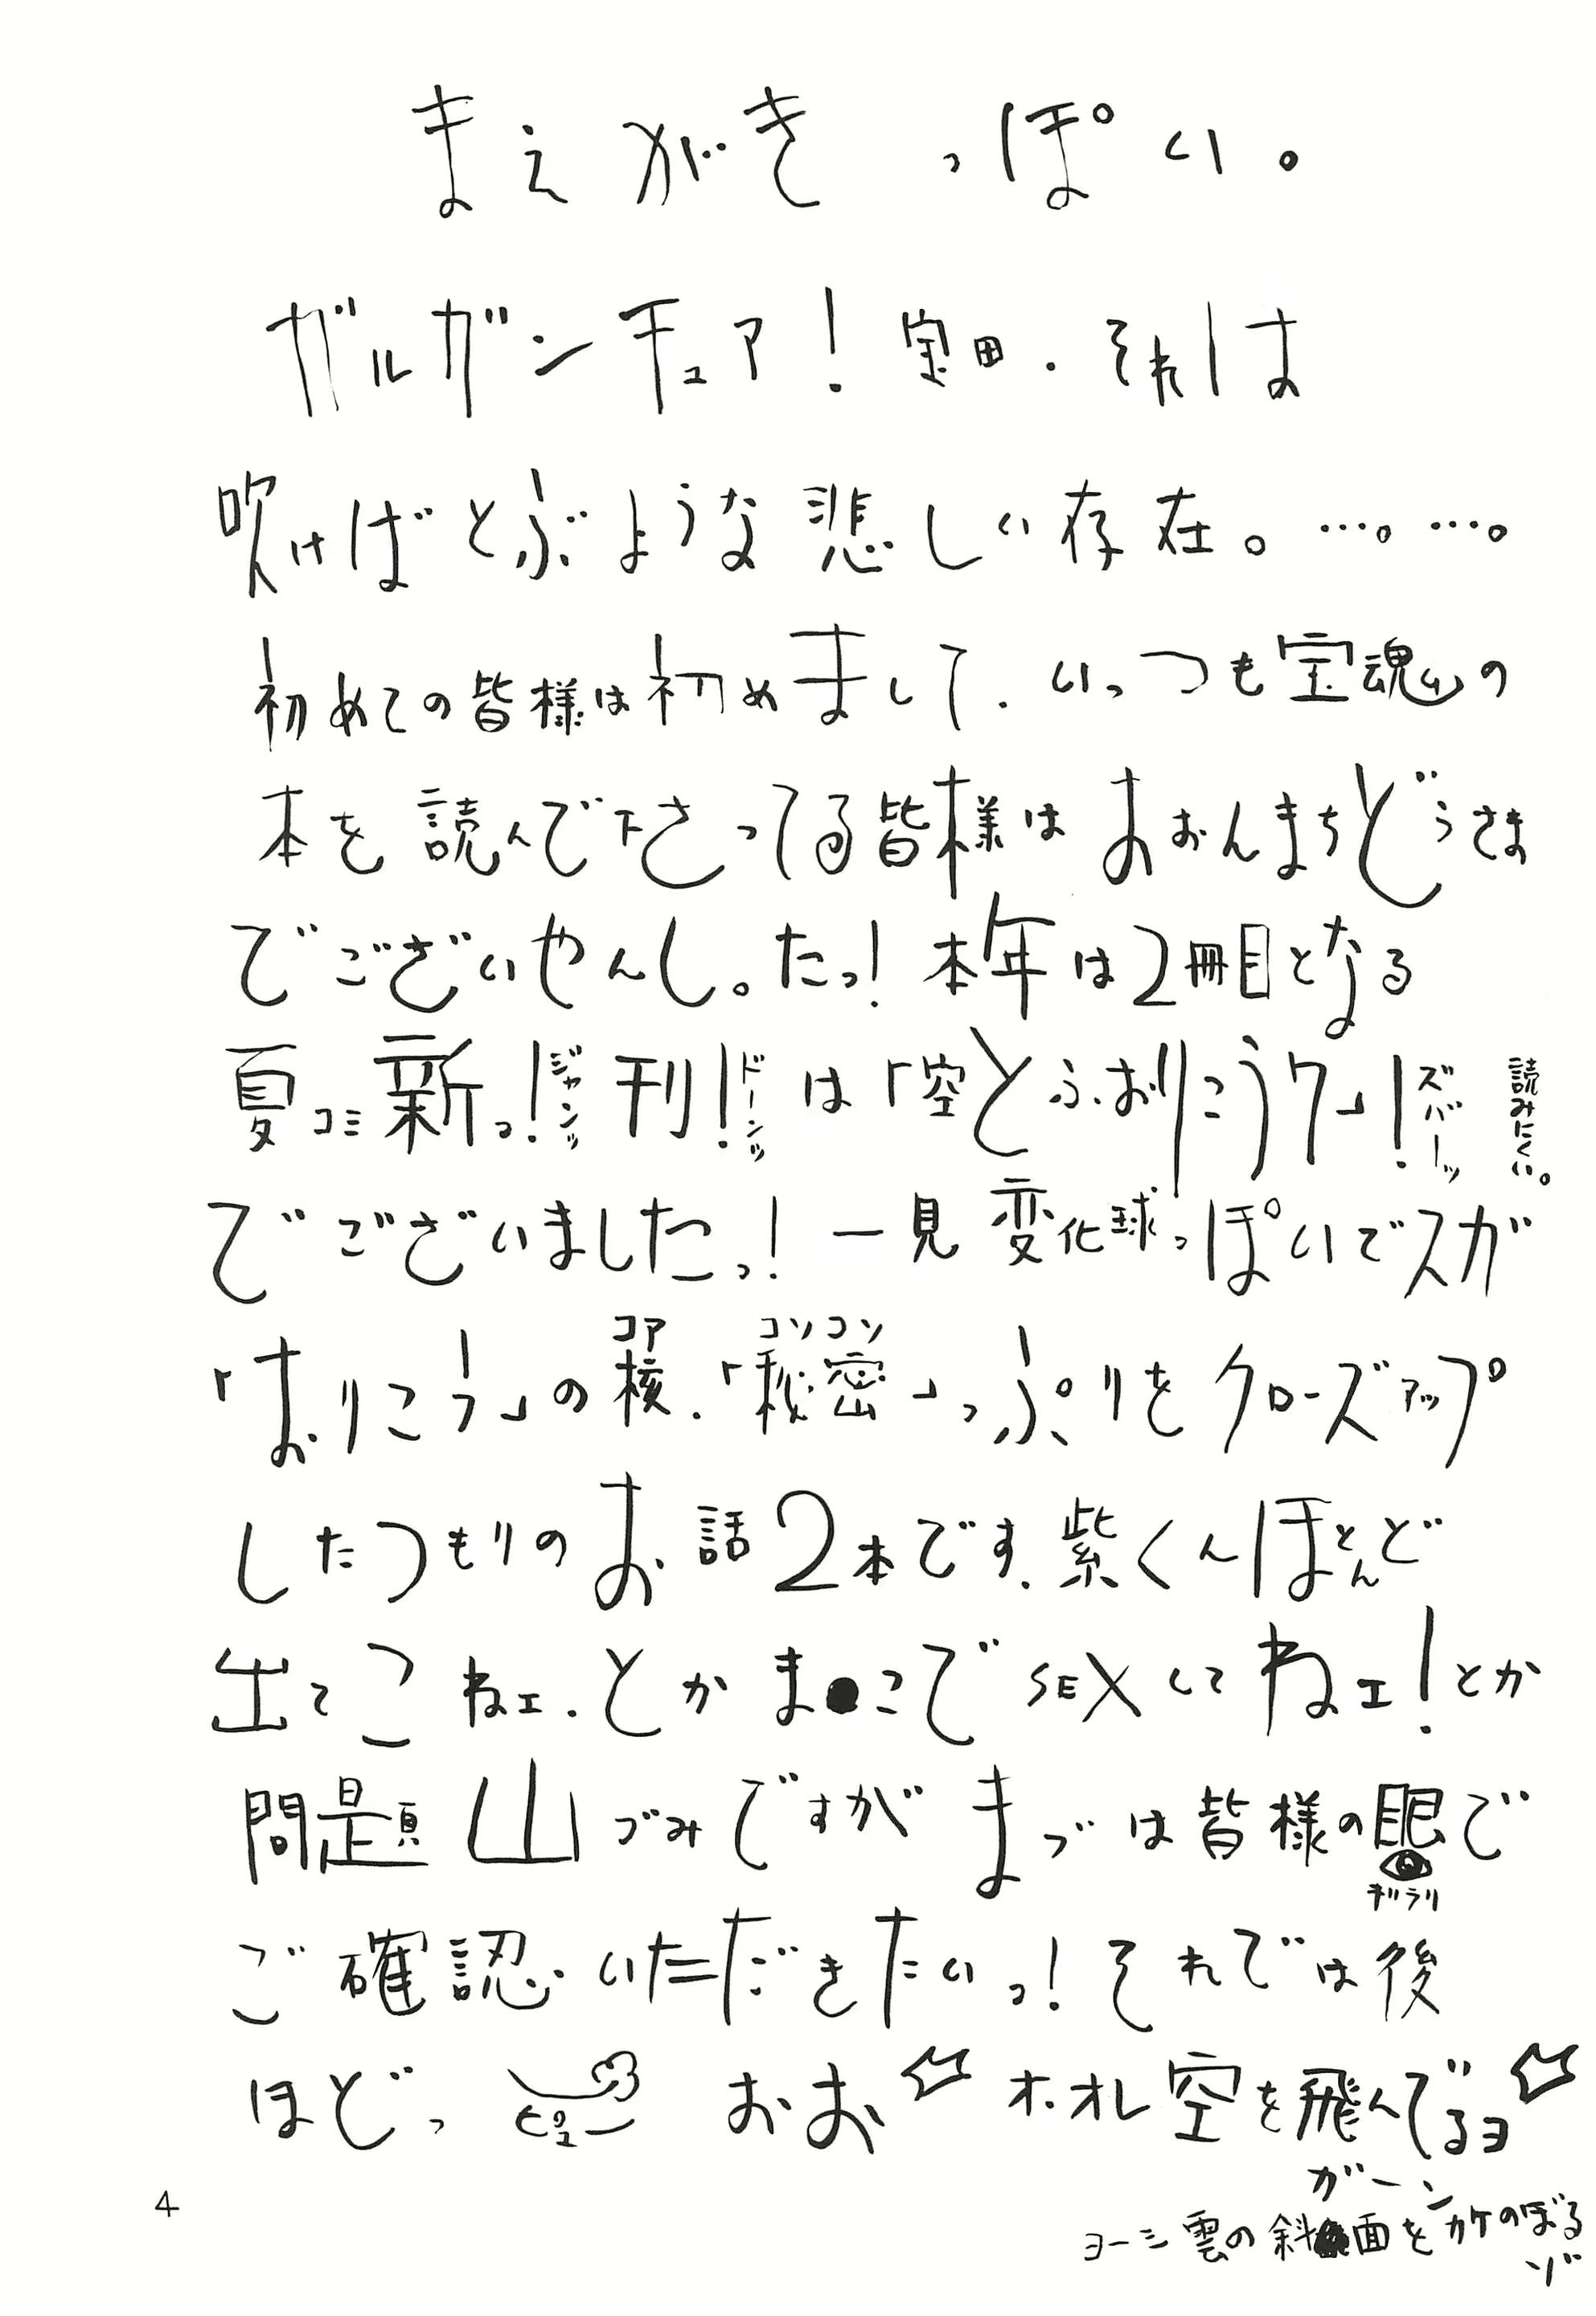 まえがきっぽい。
ガルガンチュア!宝田.それは
吹けばとぶような悲しい存在。…。…。
初めての皆様は初めまして.いっつも宝魂の
本を読んで下さってる皆様はおおんまちどうさま
でございやんし。たっ!本年は2冊目となる
夏コミ新っ!ジャンッ刊!ドーンッは「空とふおりこう7」!ズバーッ
読みにくい。
でございましたっ!一見変化球っぽいでスガ
コア コソコソ
「おりこう」の核.「秘密」っぷりをクローズアップ
したつもりのお話2本です.紫くんほとんど
出てこねェ.とかま●こでSEXしてねェ!とか
問題山づみですがまづは皆様の眼で
キリラリ
ご確認いただきたいっ!それでは後
ほどっ ピュー おお オ.オレ空を飛んでるヨ
ガーン
ヨーシ雲の斜面をカケのぼる
ゾ
4